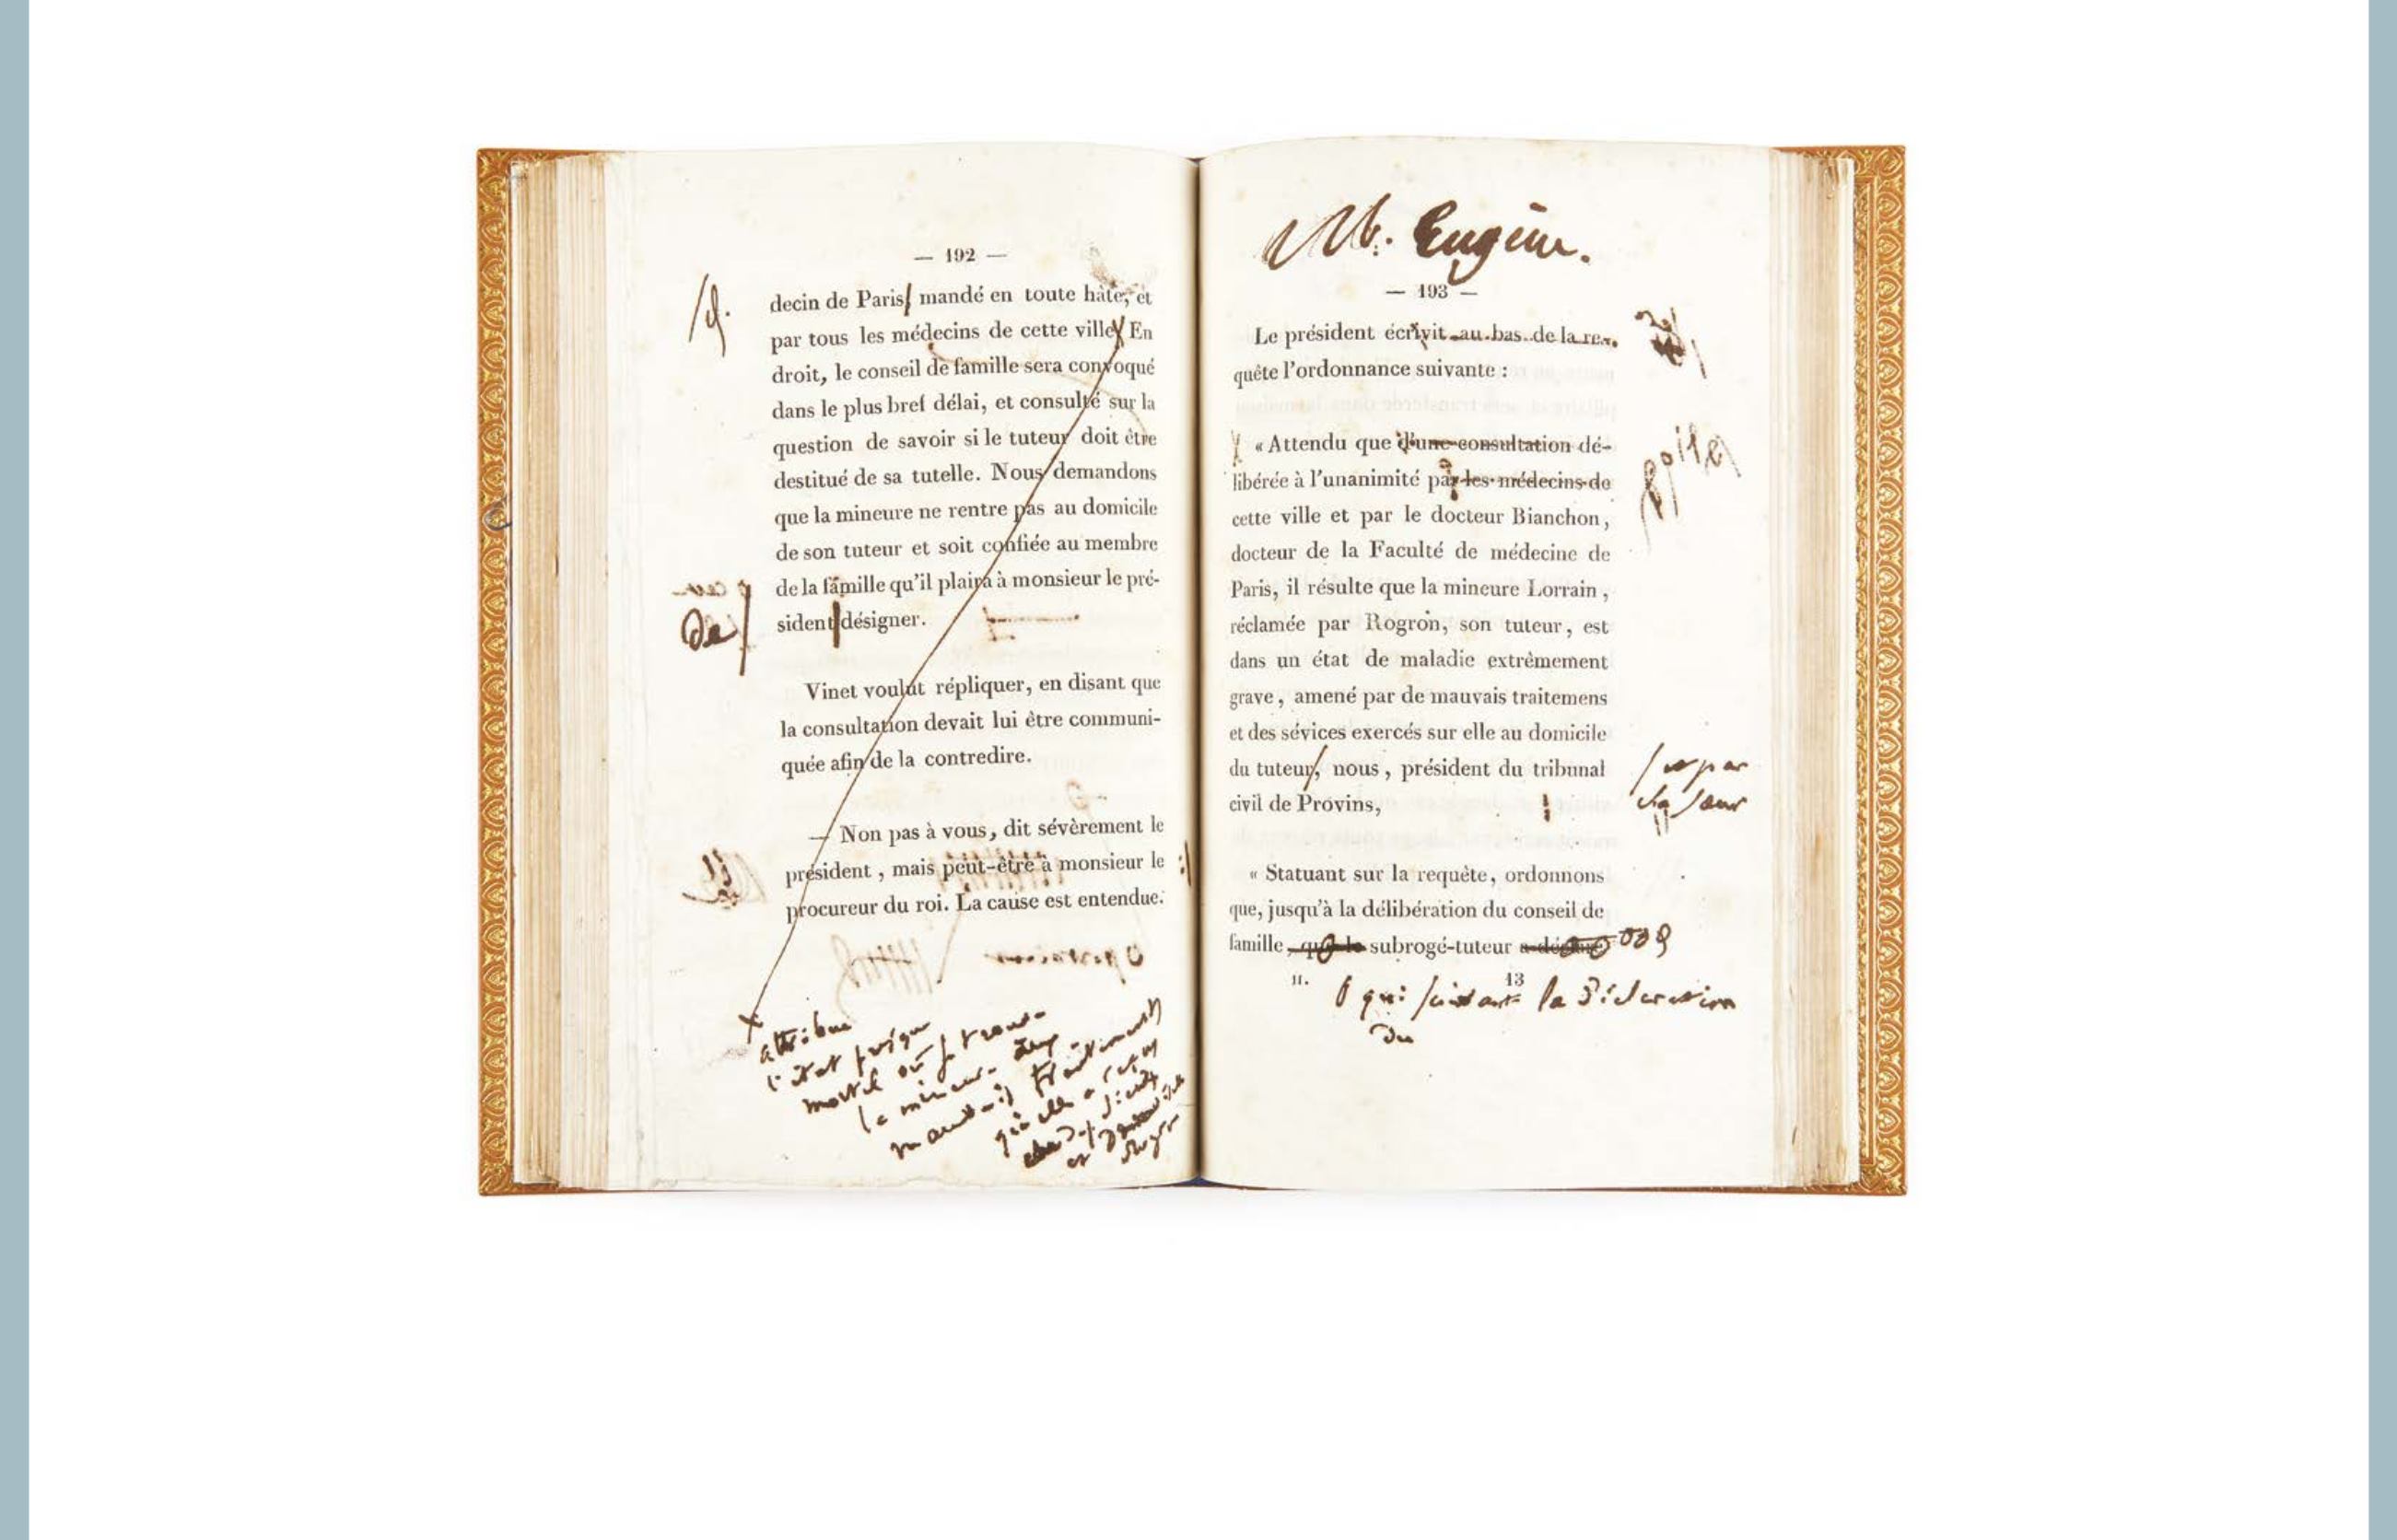 — 192 —
decin de Paris, mandé en toute hâte, et
par tous les médecins de cette ville. En
droit, le conseil de famille sera convoqué
dans le plus bref délai, et consulté sur la
question de savoir si le tuteur doit être
destitué de sa tutelle. Nous demandons
que la mineure ne rentre pas au domicile
de son tuteur et soit confiée au membre
de la famille qu'il plaira à monsieur le pré-
de
sident désigner.
Vinet voulut répliquer, en disant que
la consultation devait lui être communi-
quée afin de la contredire.
— Non pas à vous, dit sévèrement le
président, mais peut-être à monsieur le
procureur du roi. La cause est entendue.
attribue
l'état presque
mortel où se trouve
la mineure aux
mauvais traitements
qu'elle a reçus
M. Eugène.
— 193 —
Le président écrivit au bas de la re-
quête l'ordonnance suivante :
« Attendu que d'une consultation dé-
libérée à l'unanimité par les médecins de
cette ville et par le docteur Bianchon,
docteur de la Faculté de médecine de
Paris, il résulte que la mineure Lorrain,
réclamée par Rogron, son tuteur, est
dans un état de maladie extrêmement
grave, amené par de mauvais traitemens
et des sévices exercés sur elle au domicile
du tuteur, nous, président du tribunal
et par
sa sœur
civil de Provins,
« Statuant sur la requête, ordonnons
que, jusqu'à la délibération du conseil de
famille, que le subrogé-tuteur a déclaré
II. 13
qui suivant la déclaration
du